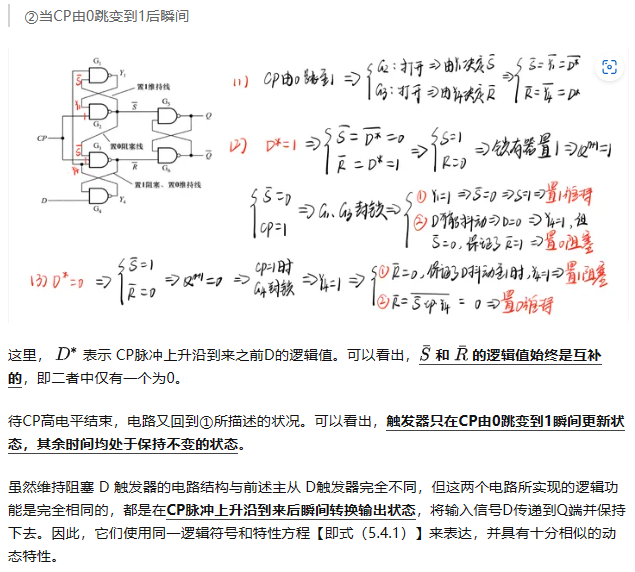 ②当CP由0跳变到1后瞬间
G₁
Y₁
置1维持线
S̄
G₂
G₅
Q
CP
G₃
置0阻塞线
Q̄
R̄
G₆
置1阻塞、置0维持线
D
G₄
Y₄
(1) CP由0跳到1 ⇒ { G2:打开⇒由Y₁决定S̄ ⇒ { S̄=Ȳ₁=D̄*
G3:打开⇒由Y4决定R̄  R̄=Ȳ₄=D*
(2) D*=1 ⇒ { S̄=D̄*=0 ⇒ { S=1 ⇒锁存器置1⇒Qⁿ⁺¹=1
R̄=D*=1  R=0
{ S̄=0 ⇒ G₁、G₃封锁 ⇒ { ① Y₁=1⇒S̄=0⇒S=1⇒置1维持
CP=1  ② D可能抖动⇒D=0⇒Y4=1,但
S̄=0,保证了R̄=1⇒置0阻塞
(3) D*=0 ⇒ { S̄=1 ⇒Qⁿ⁺¹=0⇒ CP=1时 ⇒Y4=1⇒ { ①R̄=0,保证了D抖动到1时,Y4=1⇒置1阻塞
R̄=0  G4封锁  ②R̄=S̄ CP Y4 = 0 ⇒置0维持
这里， D* 表示 CP脉冲上升沿到来之前D的逻辑值。可以看出，S̄ 和 R̄ 的逻辑值始终是互补
的，即二者中仅有一个为0。
待CP高电平结束，电路又回到①所描述的状况。可以看出，触发器只在CP由0跳变到1瞬间更新状
态，其余时间均处于保持不变的状态。
虽然维持阻塞 D 触发器的电路结构与前述主从 D触发器完全不同，但这两个电路所实现的逻辑功
能是完全相同的，都是在CP脉冲上升沿到来后瞬间转换输出状态，将输入信号D传递到Q端并保持
下去。因此，它们使用同一逻辑符号和特性方程【即式（5.4.1）】来表达，并具有十分相似的动
态特性。